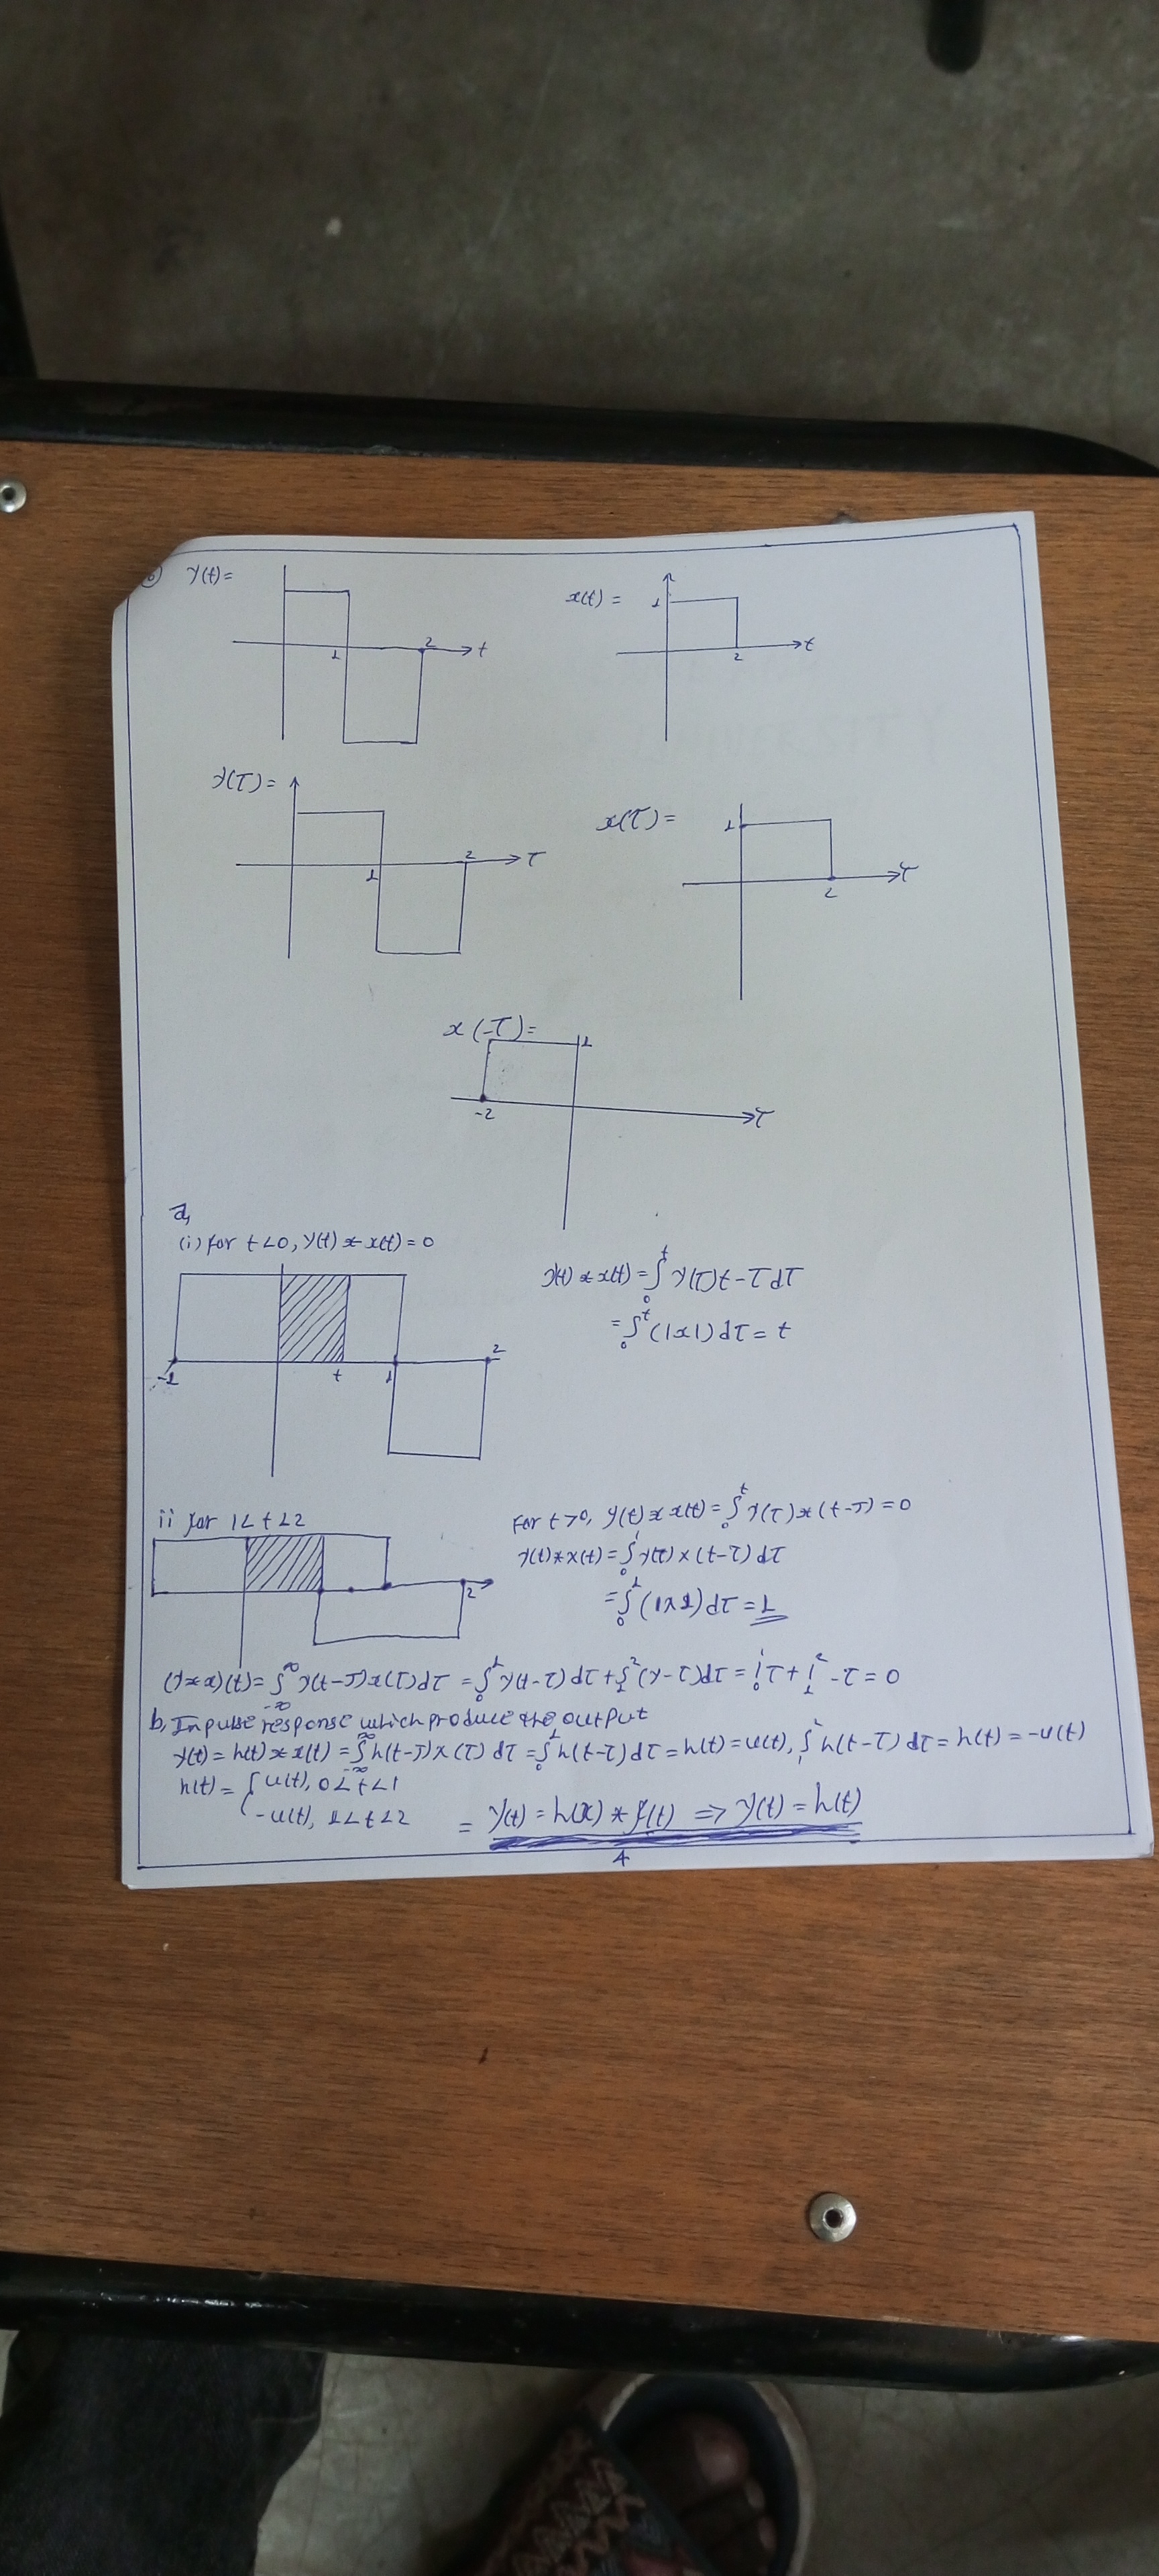 6 y(t)=
1
2
t
x(t) =
1
2
t
y(τ)=
1
2
τ
x(τ)=
1
2
τ
x(-τ)=
1
-2
τ
a,
(i) for t<0, y(t) * x(t) = 0
-1
t
1
2
y(t) * x(t) = ∫₀ᵗ y(τ)(t-τ dτ
= ∫₀ᵗ (1x1) dτ = t
ii for 1<t<2
2
For t>0, y(t) * x(t) = ∫₀ᵗ y(τ)x(t-τ) = 0
y(t)*x(t) = ∫₀¹ y(τ)x(t-τ) dτ
= ∫₀¹ (1x1) dτ = 1
(y*x)(t) = ∫₋∞^∞ y(t-τ)x(τ)dτ = ∫₀¹ y(t-τ) dτ + ∫₁² (y-τ)dτ = |₀¹ τ + |₁² -τ = 0
b, Inpulse response which produce the output
y(t) = h(t) * x(t) = ∫₋∞^∞ h(t-τ)x(τ) dτ = ∫₀¹ h(t-τ) dτ = h(t) = u(t), ∫₁² h(t-τ) dτ = h(t) = -u(t)
h(t) = { u(t), 0<t<1
-u(t), 1<t<2 = y(t) = h(x) * f(t) ⇒ y(t) = h(t)
4